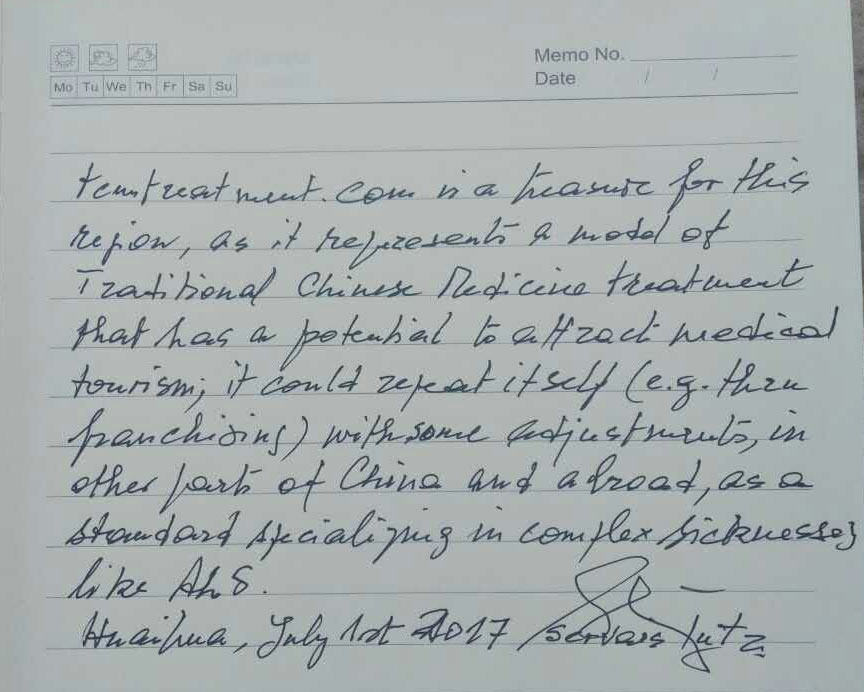 Memo No.
Mo Tu We Th Fr Sa Su
Date / /
tcmtreatment.com is a treasure for this
region, as it represents a model of
Traditional Chinese Medicine treatment
that has a potential to attract medical
tourism; it could repeat itself (e.g. thru
franchising) with some adjustments, in
other parts of China and abroad, as a
standard specializing in complex sicknesses
like ALS.
Huaihua, July 1st 2017 Servais